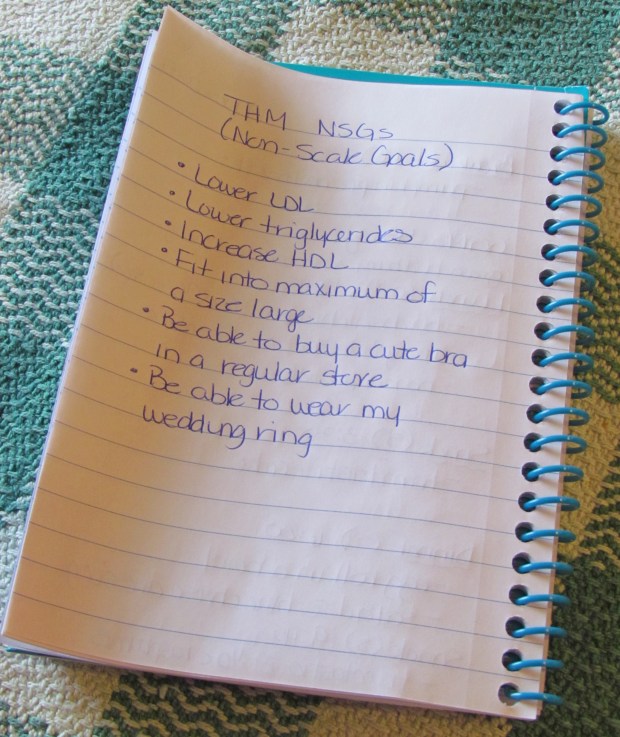 THM NSGs
(Non-Scale Goals)
• Lower LDL
• Lower triglycerides
• Increase HDL
• Fit into maximum of
a size large
• Be able to buy a cute bra
in a regular store
• Be able to wear my
wedding ring